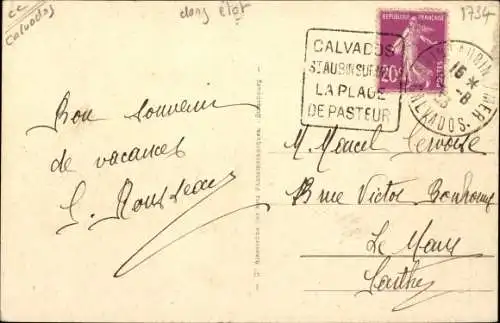 cc
Calvados
dong état
1734
REPUBLIQUE FRANÇAISE
20c
POSTES
CALVADOS
ST AUBIN SUR MER
LA PLAGE
DE PASTEUR
ST AUBIN S MER
16 *
-8
CALVADOS
Bon souvenir
de vacances
G. Rousseau
M. Marcel Servoise
8 rue Victor Bonhomme
Le Mans
Sarthe